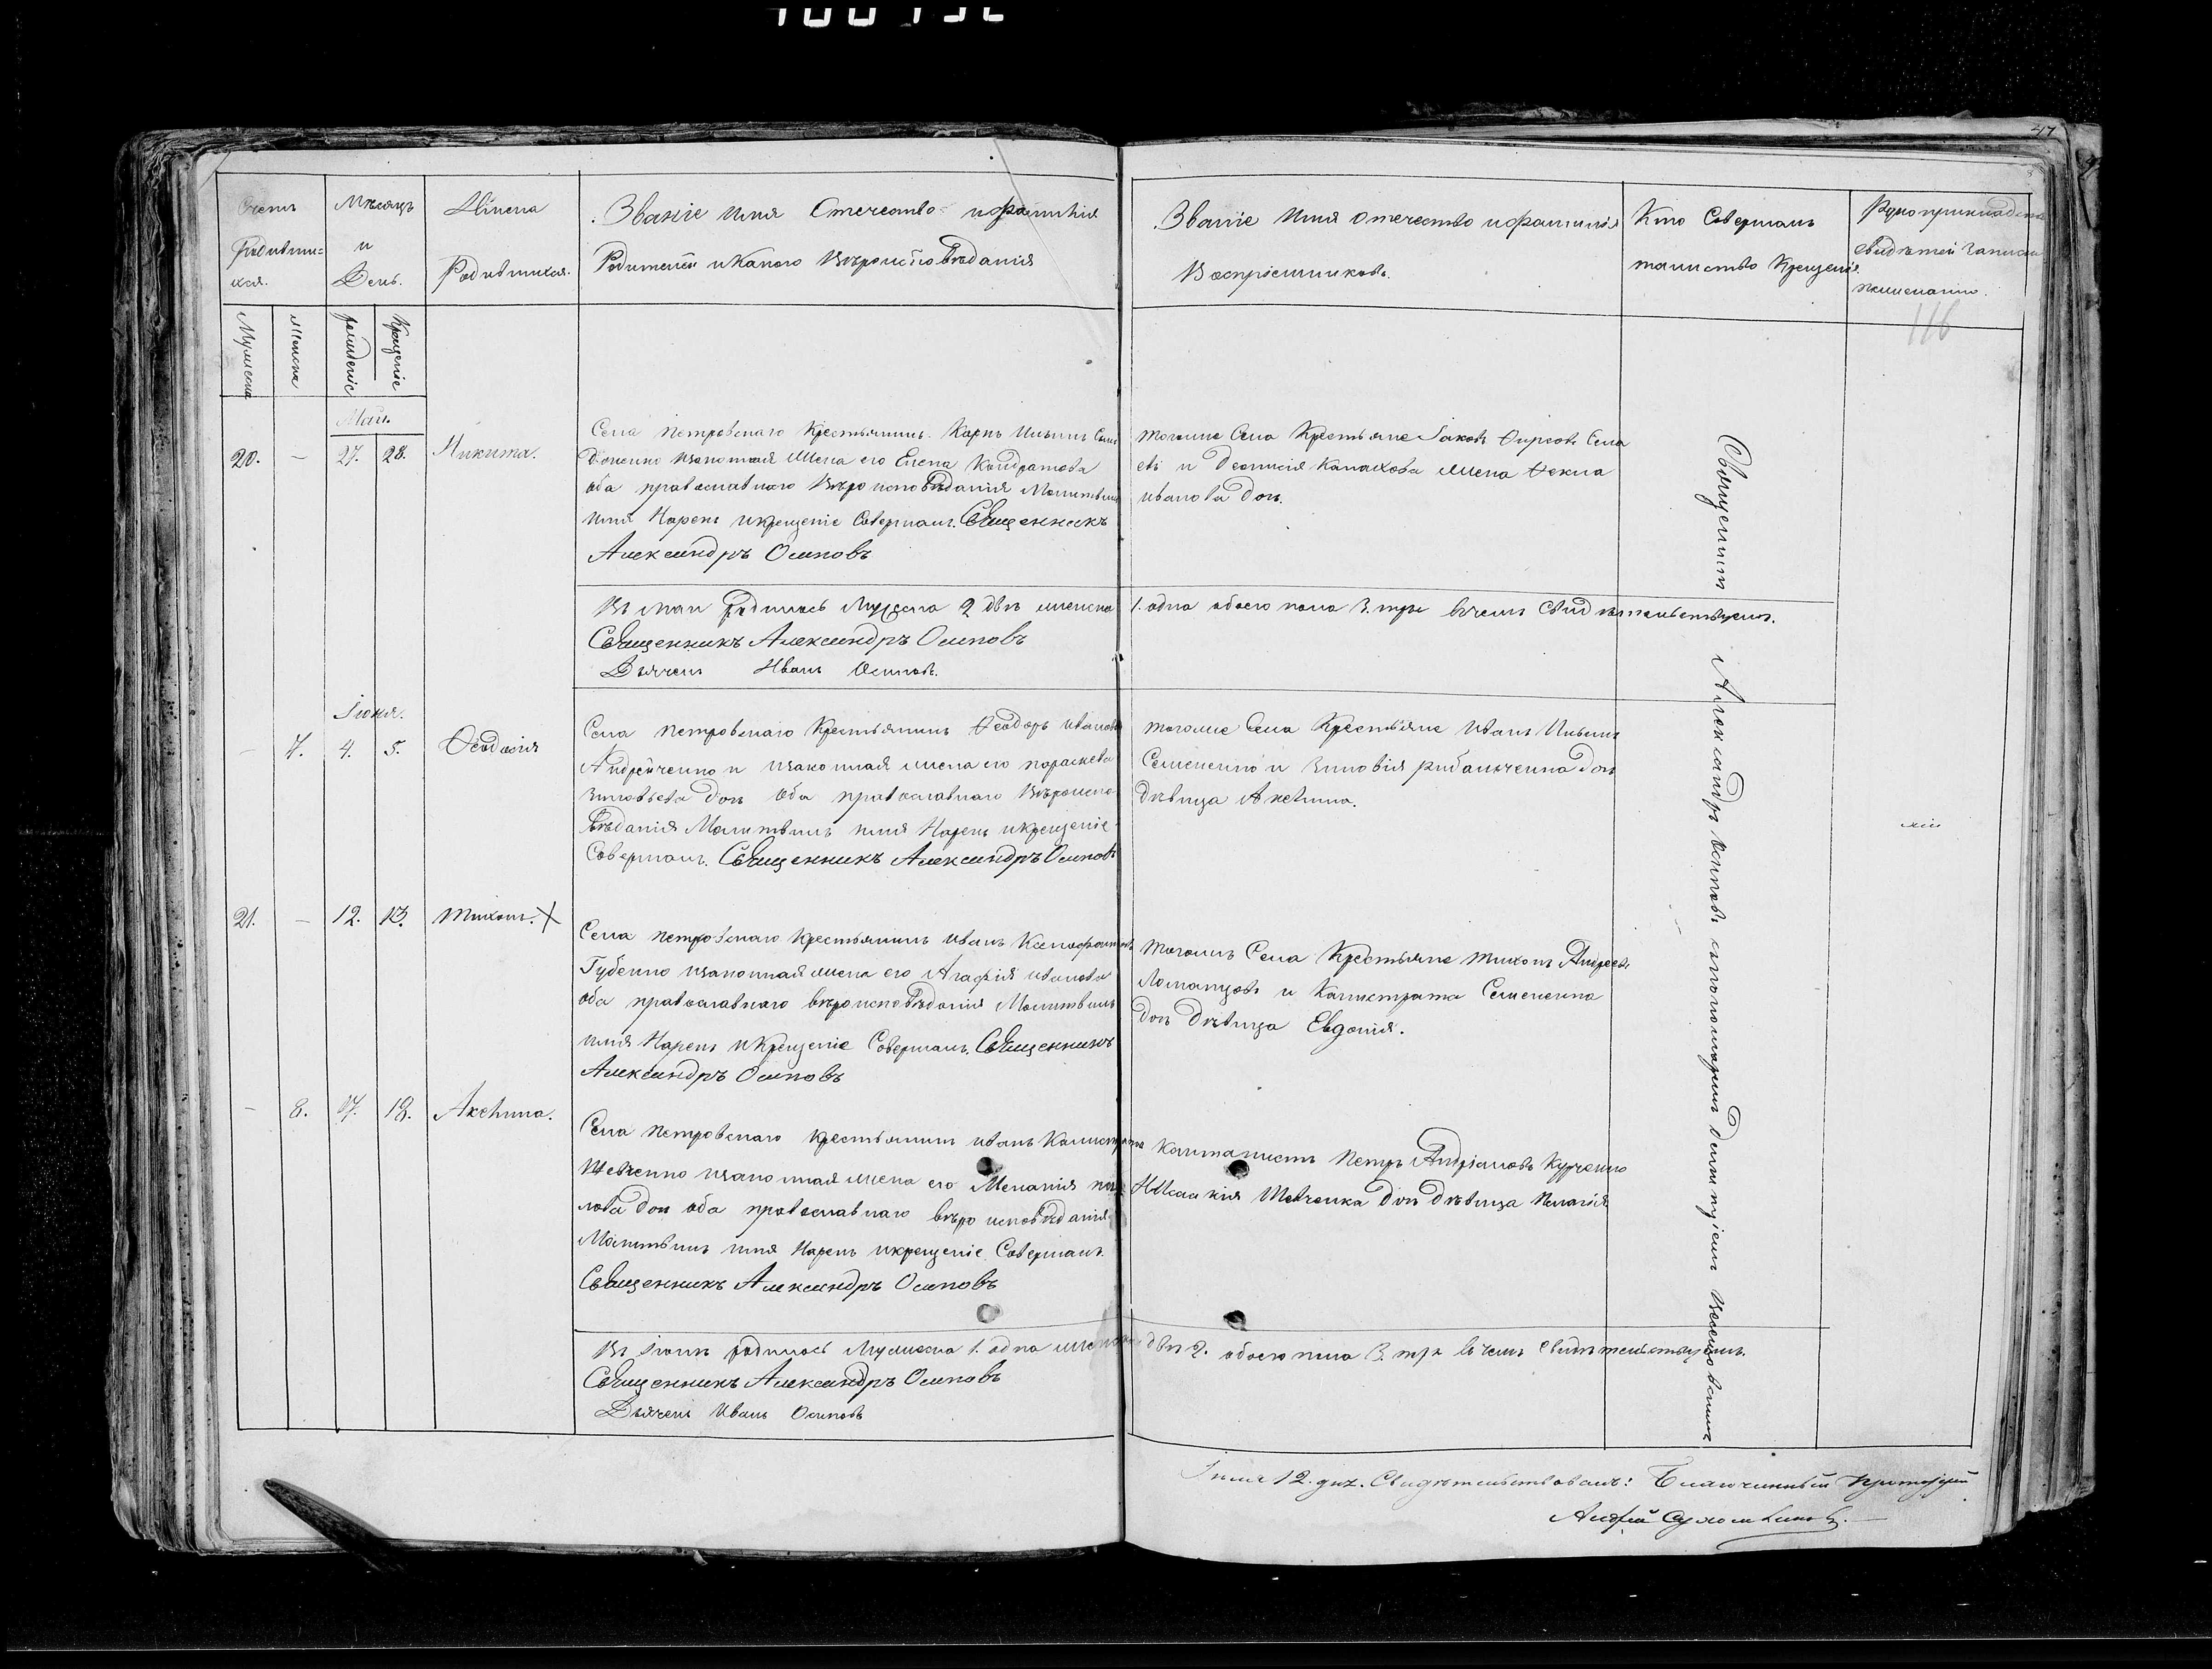 47
Счетъ Родивши=хся.
Мѣсяцъ и День.
Имена Родившихся.
Званіе Имя Отечество и фамилія
Родителей и Какого Вѣроисповѣданія
Званіе Имя отечество и фамилія
Воспріемниковъ.
Кто Совершалъ
таинство Крещенія
Рукоприкладство
свидѣтелей записи
по желанію.
Мужеска
Женска
рожденіе
Крещеніе
116
Маія.
20. — 27. 28. Никита.
Села Петровскаго Крестьянинъ Карпъ Ильинъ Семе
=ненко и законная жена его Елена Кондратова
оба православнаго Вѣроисповѣданія Молитвилъ
имя Нарекъ и крещеніе Совершалъ. Священникъ
Александръ Осиповъ
тогоже Села Крестьяне Іаковъ
евъ и жена Фекла
иванова дочь.
Въ маи родилось Мужеска 2 два женска
1. одна обоего пола 3. три въ чемъ Свидѣтельствуемъ.
Священникъ Александръ Осиповъ
Дьячекъ Иванъ Осиповъ.
Іюня.
— 7. 4. 5. Феодосія
Села Петровскаго Крестьянинъ Феодоръ ивановъ
Андрейченко и законная жена его параскева
зиновьева дочь оба православнаго Вѣроиспо=
вѣданія Молитвилъ имя Нарекъ и крещеніе
Совершалъ. Священникъ Александръ Осиповъ
тогоже Села Крестьяне иванъ Ильинъ
Семененко и Зиновія рибальченка дочь
дѣвица Аксинія.
21. — 12. 13. Тихонъ. X
Села Петровскаго Крестьянинъ иванъ Ксенофонтовъ
Губенко и законная жена его Агафія иванова
оба православнаго вѣроисповѣданія Молитвилъ
имя Нарекъ и Крещеніе Совершалъ. Священникъ
Александръ Осиповъ
тогожъ Села Крестьяне тихонъ Андреевъ
Ломанцовъ и Калистрата Семененка
дочь дѣвица Евдокія.
— 8. 17. 18. Аксинія.
Села Петровскаго Крестьянинъ иванъ Калистратовъ
Шевченко и законная жена его Меланія
лова дочь оба православнаго вѣроисповѣданія
Молитвилъ имя Нарекъ и крещеніе Совершалъ.
Священникъ Александръ Осиповъ
Кантанистъ Петръ Андріановъ Курченко
Шевченка дочь дѣвица Пелагія
Въ Іюнѣ родилось Мужеска 1. одна женска
двѣ 2. обоего пола 3. три въ чемъ Свидѣтельствуемъ.
Священникъ Александръ Осиповъ
Дьячекъ Иванъ Осиповъ
Священникъ Александръ Осиповъ
Іюля 12. дня. Свидѣтельствовалъ: Благочинный Протоіерей
Андрей